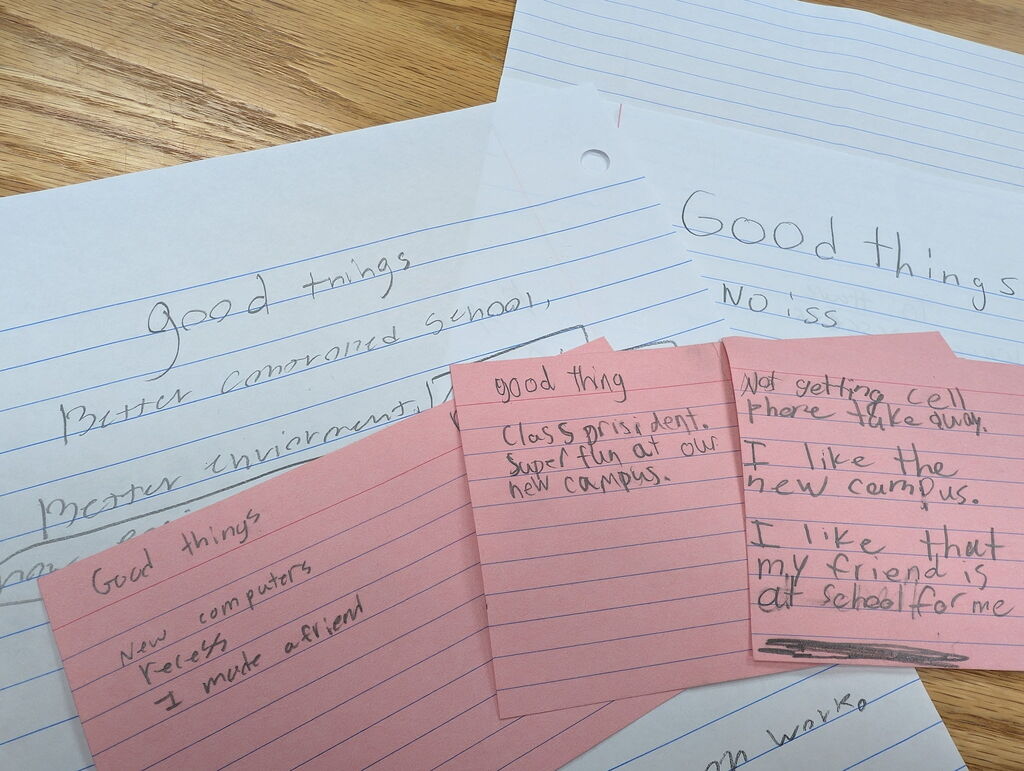 good tnings
Better conoroned school,
Better enviorment,
Good things
No iss
Good things
New computers
recess
I made a friend
good thing
Class prisident.
Super fun at our
new campus.
Not getting cell
phone take away.
I like the
new campus.
I like that
my friend is
at school for me
work.